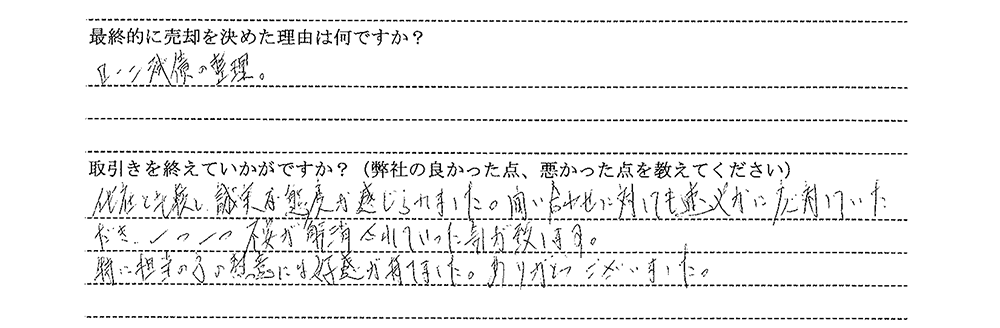 最終的に売却を決めた理由は何ですか？
ローン残債の整理。
取引きを終えていかがですか？（弊社の良かった点、悪かった点を教えてください）
他店と比較し、誠実な態度が感じられました。問い合わせに対しても速やかに応対していた
だき、一つ一つ不安が解消されていった気が致します。
特に担当の方の熱意には好感が持てました。ありがとうございました。